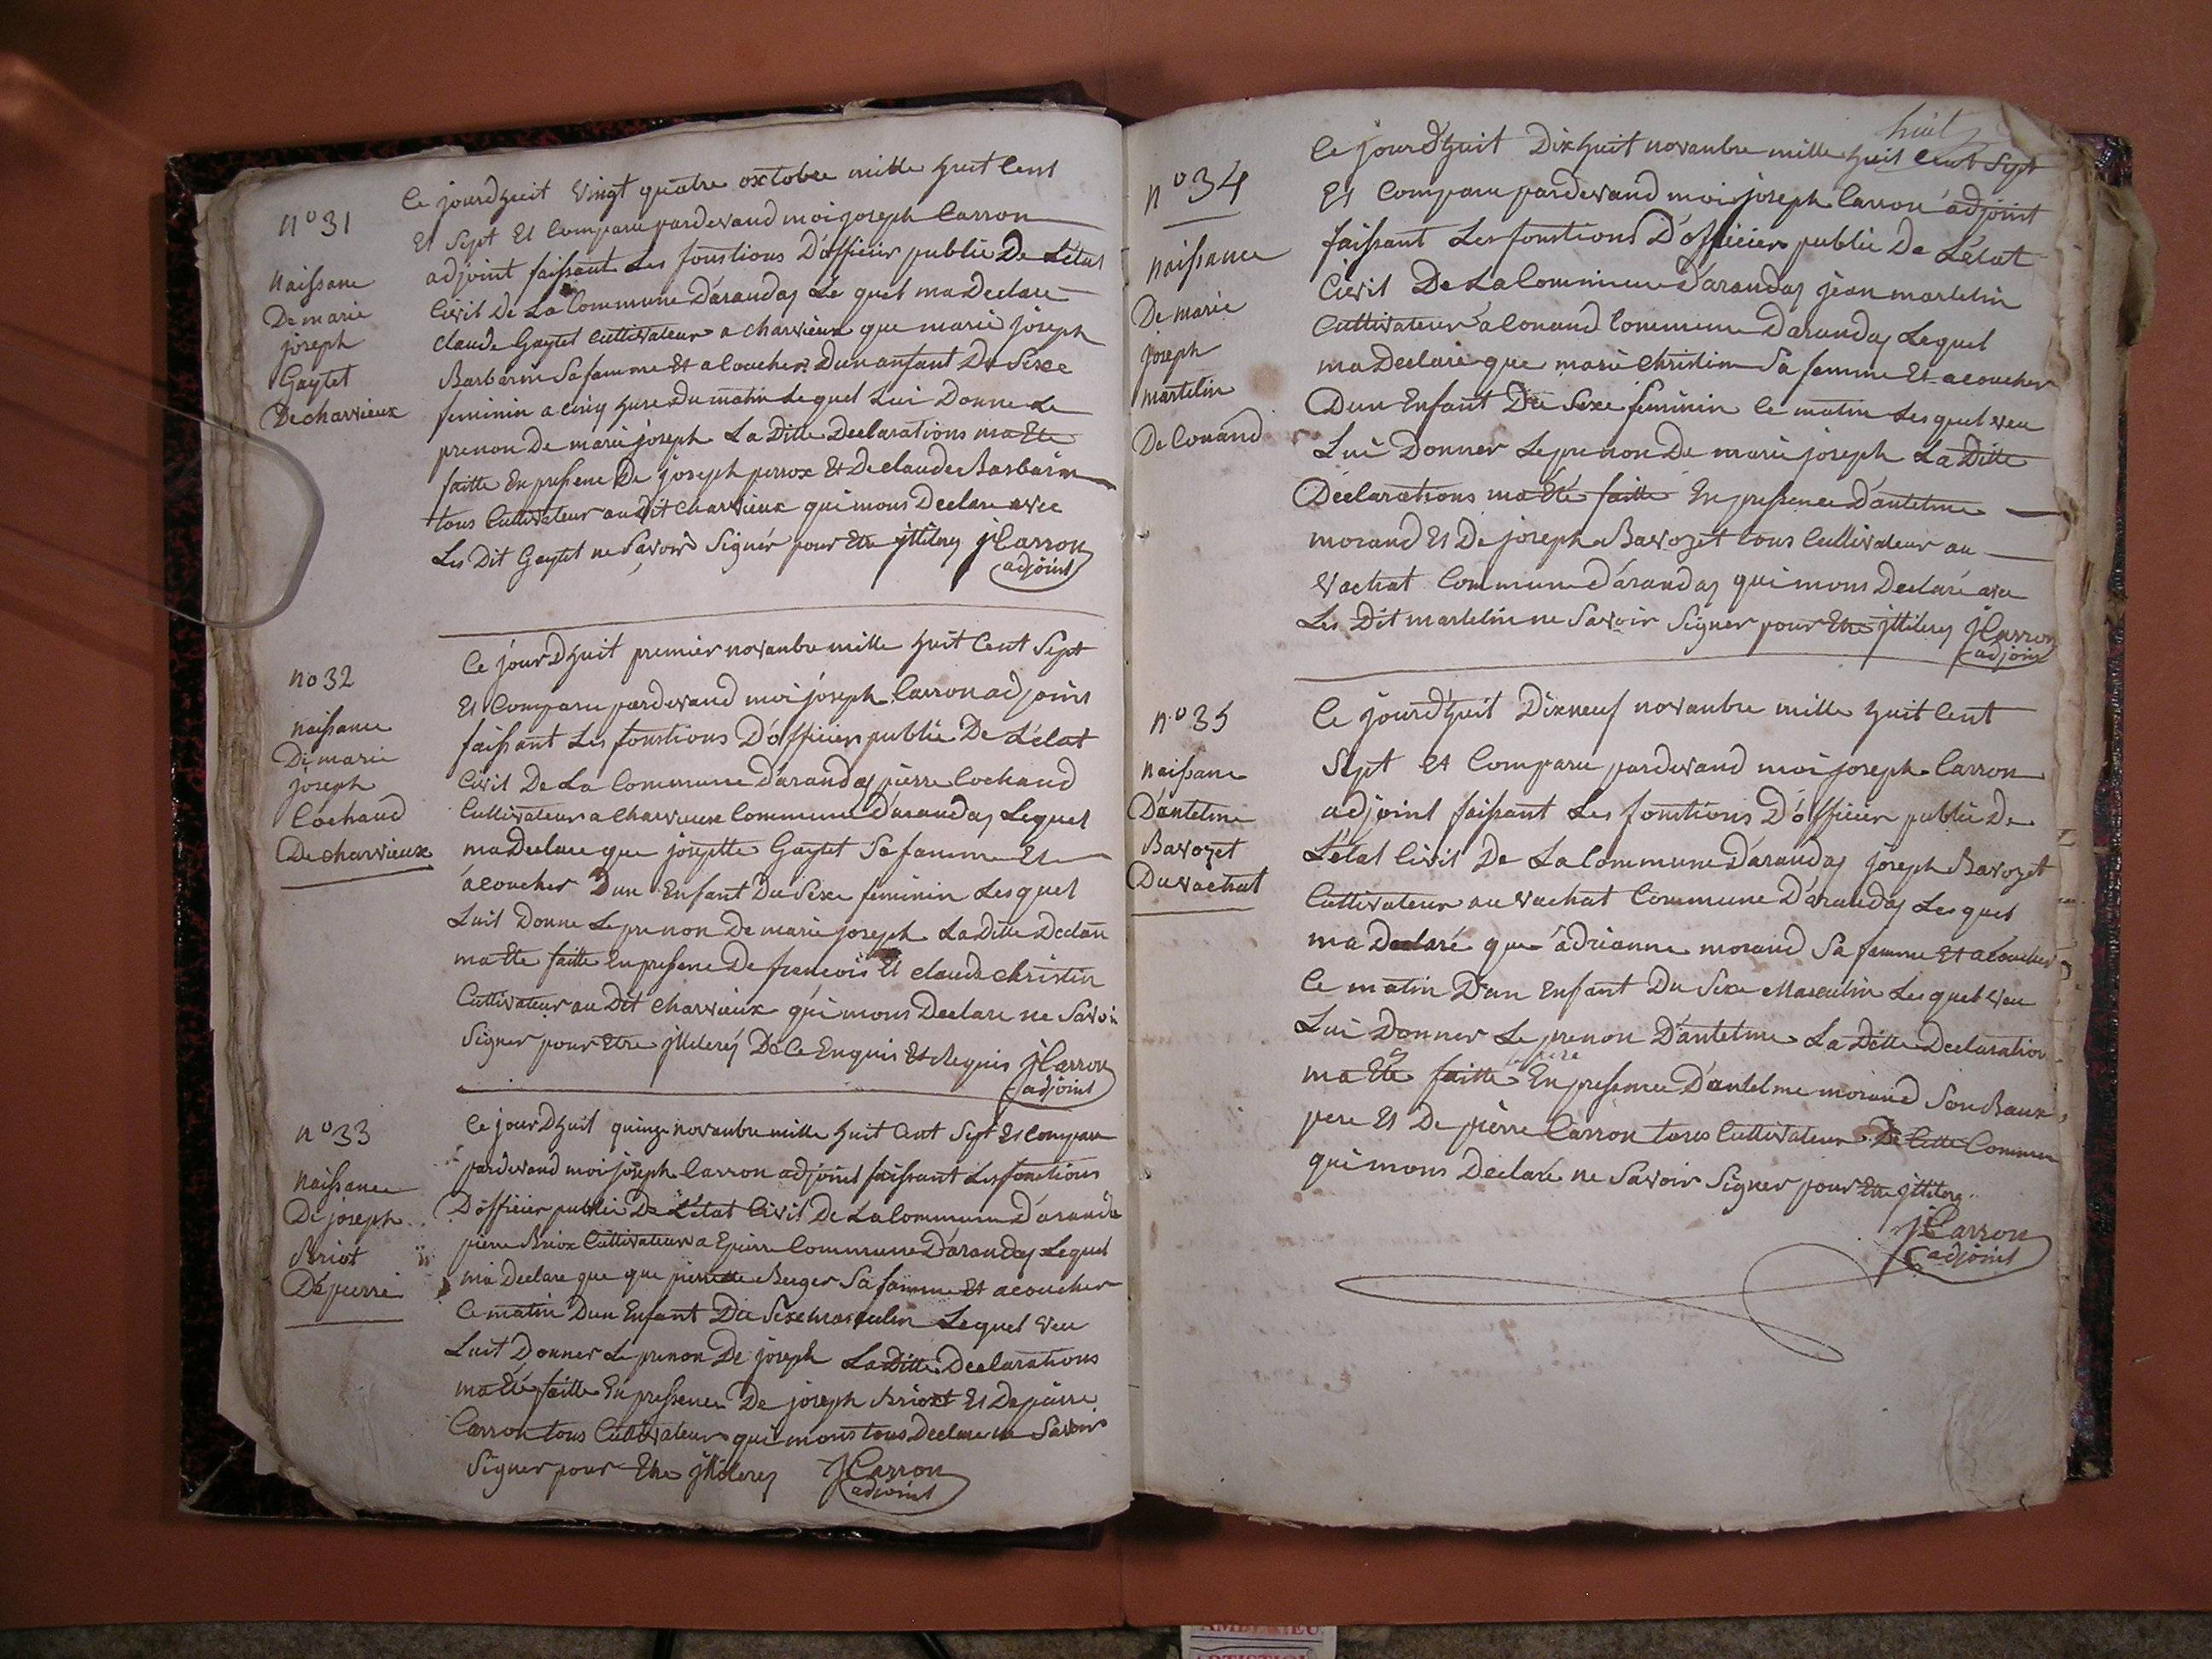 n° 31
Naissane
De marie
joseph
Gaytet
De charvieux
Ce jourdhuit vingt quatre oxtobre mille huit Cent
Et Sept Et Comparu pardevand moi joseph Carron
adjoint faissant Les fonstions D'officier publie De L'état
Civil De La Commune D'arandas Le quel ma Declare
claude Gaytet Cultivateur a charvieux que marie joseph
Barbarin Sa famme Et acoucher Dun anfant Du Sexe
feminin a cinq hure du matin Lequel Lui Donne Le
prenon De marie joseph La Ditte Declarations ma Ete
faitte En pressene De joseph perrox Et De claude Barbarin
tous Cultivateur au Dit charvieux qui mons Declare avec
Les Dit Gaytet ne Savoir Signér pour Etre jlliterey JCarron
adjoint
no 32
naissance
De marie
joseph
Cochand
De charvieux
Ce jourdhuit premier novanbre mille huit Cent Sept
Et Comparu pardevand moi joseph Carron adjoint
faissant Les fonstions D'officier publie De L'état
Civil De La Commune D'arandas pierre Cochand
Cultivateur a charvieux Commune D'arandas Lequel
ma Declare que joseptte Gaytet Sa famme Et
acoucher Dun Enfant Du Sexe feminin Lesquel
Luit Donne Le prenon De marie joseph La Ditte Declan
ma Ete faitte En pressene De francois Et claude christin
Cultivateur au Dit charvieux qui mons Declare ne Savoi
Signer pour Etre jlleterey De Ce Enquis Et Requis JCarron
adjoint
n° 33
Naissance
De joseph
Briot
Dépierre
Ce jourdhuit quinze novanbre mille huit Cent Sept Et Comparu
pardevand moi joseph Carron adjoint faissant Les fonctions
D'officier publie De L'état Civil De La Commune D'aranda
pierre Briox Cultivateur a Epierre Commune D'arandas Lequel
ma Declare que que pierrette Berger Sa famme Et acoucher
Ce matin Dun Enfant Du Sexe masculin Lequel veu
Luit Donner Le prenon De joseph La Ditte Declarations
ma Eté faitte En pressence De joseph Brioxt Et De pierre
Carron tous Cultivateur qui mons tous Declare ne Savoir
Signer pour Etre jlliterey JCarron
adjoint
huit
n° 34
naissance
De marie
joseph
martelin
De Conand
Ce jourdhuit Dix huit novanbre mille huit Cent Sept
Et Comparu pardevand moi joseph Carron adjoint
faissant Les fonstions D'officier publie De L'état
Civil De La Commune D'arandas jean martelin
Cultivateur a Conand Commune D'arandas Lequel
ma Declaré que marie christin Sa femme Et acoucher
Dun Enfant Du Sexe feminin Ce matin Lesquel veu
Lui Donner Le prenon De marie joseph La Ditte
Declarations ma Eté faitte En pressence D'antelme
morand Et De joseph Bavozet tous Cultivateur au
vachat Commune D'arandas qui mons Declaré avec
Les Dit martelin ne Savoir Signer pour Etre jlliterey JCarron
adjoint
n° 35
Naissane
D'antelme
Bavozet
Du vachat
Ce jourdhuit Dix neuf novanbre mille huit Cent
Sept Et Comparu pardevand moi joseph Carron
adjoint faissant Les fonstions D'officier publie De
L'état Civil De La Commune D'arandas joseph Bavozet
Cultivateur au vachat Commune D'arandas Lesquel
ma Declaré que adrianne morand Sa famme Et acoucher
Ce matin D'un Enfant Du Sexe Masculin Lesquel veu
Lui Donner Le prenon D'antelme La Ditte Declaration
ma Ete faitte En pressence D'antelme morand Son Beaux
pere Et De pierre Carron tous Cultivateur De Cette Commun
qui mons Declaré ne Savoir Signer pour Etre jlliterey
JCarron
adjoint